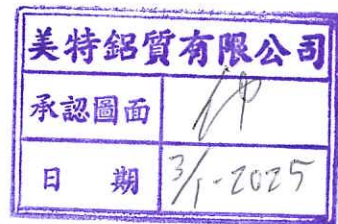 美特鋁質有限公司
承認圖面
日 期 3/1-2025